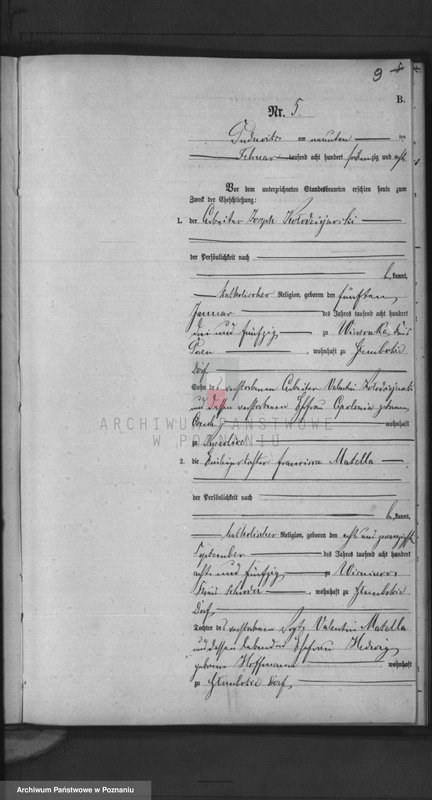 9
B.
Nr. 5.
Pudewitz am neunten ten
Februar tausend acht hundert siebenzig und acht
Vor dem unterzeichneten Standesbeamten erschien heute zum
Zweck der Eheschließung:
1. der Arbeiter Joseph Kolodziejewski
der Persönlichkeit nach
kannt,
katholischer Religion, geboren den fünften
Januar des Jahres tausend acht hundert
drei und fünfzig zu Kreis
Posen, wohnhaft zu Glembokie
Dorf
Sohn des verstorbenen Arbeiter Valentin Kolodziejewski
und dessen verstorbenen Ehefrau geborene
wohnhaft
zu
2. die Franziska Matella
der Persönlichkeit nach
kannt,
katholischer Religion, geboren den acht und zwanzigsten
September des Jahres tausend acht hundert
acht und fünfzig zu
Kreis Schroda, wohnhaft zu Glembokie
Dorf
Tochter des verstorbenen Vogt Valentin Matella
und dessen lebenden Ehefrau Hedwig
geborene Hoffmann wohnhaft
zu Glembokie Dorf
ARCHIWUM PAŃSTWOWE
W POZNANIU
Archiwum Państwowe w Poznaniu